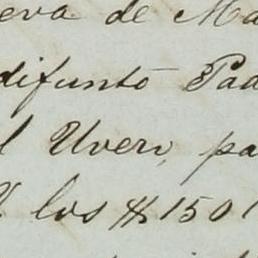 eva de Ma
difunto Pad
l Uveri, pa
los $150